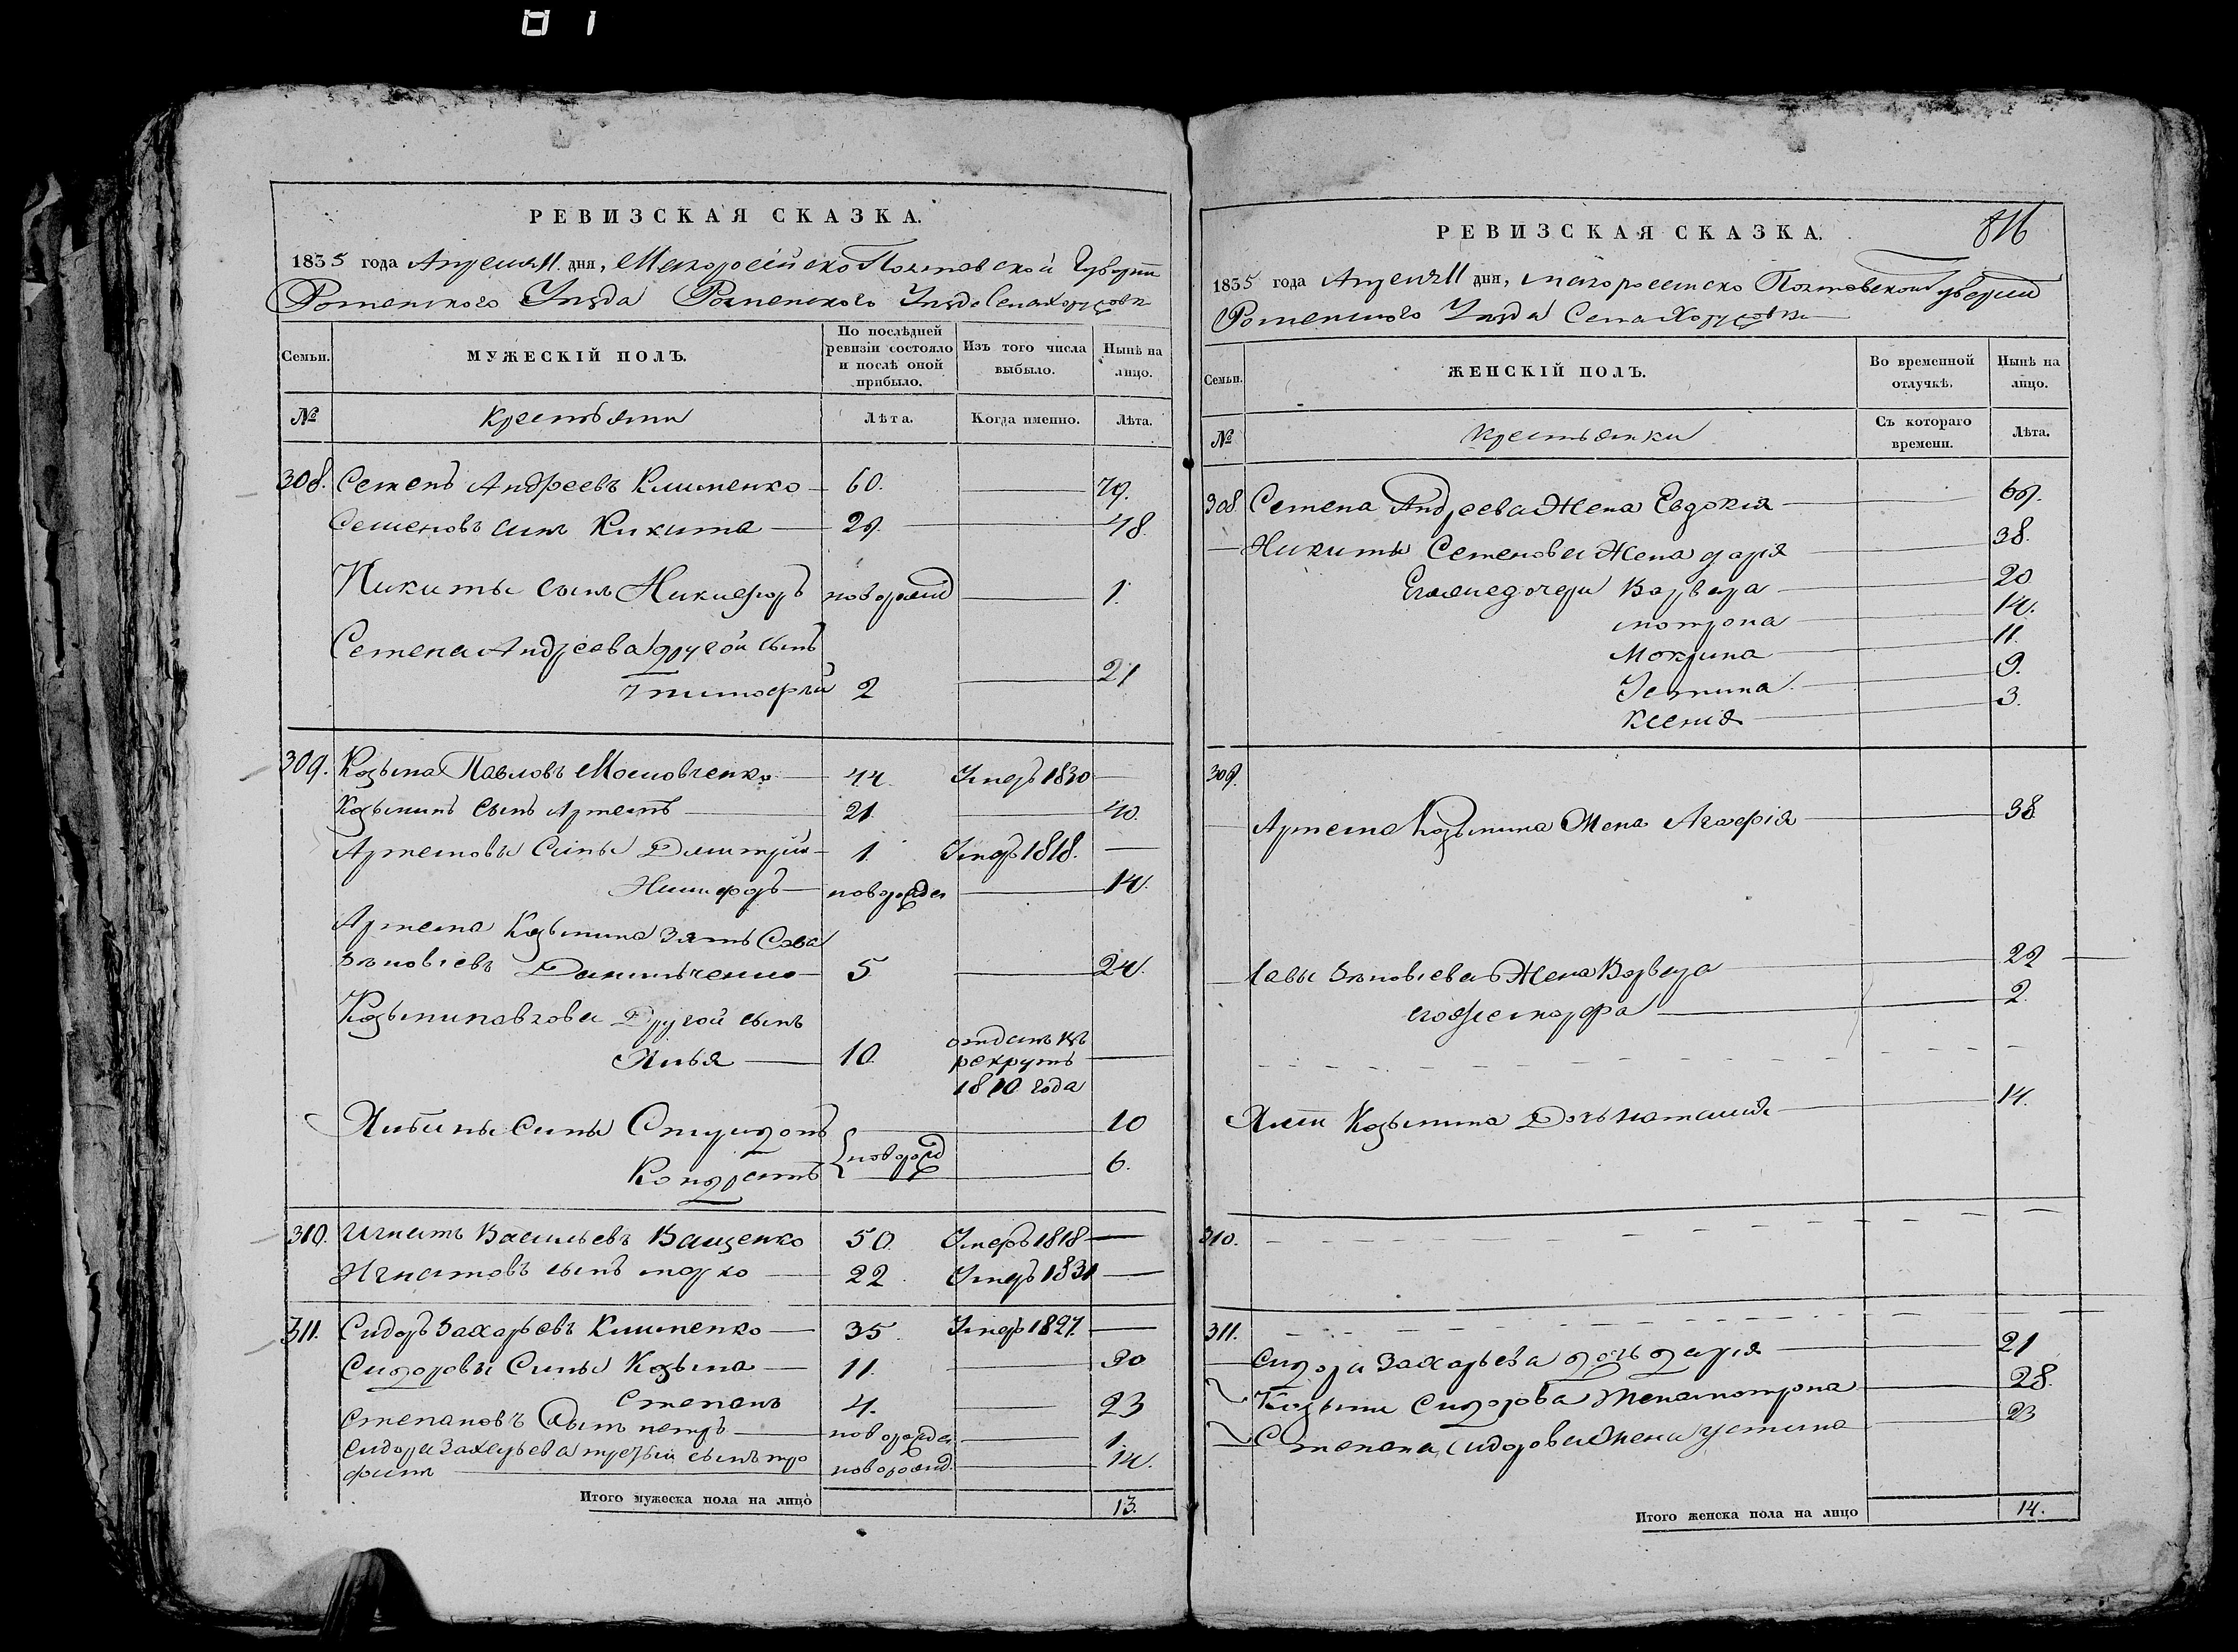 РЕВИЗСКАЯ СКАЗКА.
1835 года Апреля 11 дня, Малоросийско Полтавской Губернии
Роменского Уезда Роменского Уезда Села Хоружовки
Семьи.
МУЖЕСКІЙ ПОЛЪ.
По послѣдней ревизіи состояло и послѣ оной прибыло.
Изъ того числа выбыло.
Нынѣ на лицо.
№
Крестьяни
Лѣта.
Когда именно.
Лѣта.
308. Семенъ Андреевъ Клименко 60. 79.
Семеновъ синъ Никита 29. 48.
Никиты сынъ Никифоръ новорожд 1.
Семена Андреева другой сынъ
Тимофей 2 21
309. Козьма Павловъ Мосиовченко 44. Умеръ 1830
Козьминъ сынъ Артемъ 21. 40.
Артемовы Сины Димитрий 1. Умеръ 1818.
Никифоръ новорожден 14.
Артема Козьмина зять Сава
Зѣновіевъ Данильченко 5 24.
Козьми Павлова Другой сынъ
Илья 10. отданъ въ
рекруты
1820 года
Ильины Сины Спиридонъ 10
Кондратъ новорожд 6.
310. Игнатъ Васильевъ Ващенко 50. Умеръ 1818
Игнатовъ сынъ марко 22. Умеръ 1831
311. Сидоръ Захарьевъ Клименко 35. Умеръ 1827.
Сидоровы Сины Козьма 11. 30
Степанъ 4. 23
Степановъ Сынъ петръ новорожден 1.
Сидора Захарьева третьй сынъ тро
фимъ новорожд. 14.
Итого мужеска пола на лицо 13.
РЕВИЗСКАЯ СКАЗКА.
816
1835 года Апреля 11 дня, малоросийско Полтавской Губернии
Роменского Уезда Села Хоружовки
Семьи.
ЖЕНСКІЙ ПОЛЪ.
Во временной отлучкѣ.
Нынѣ на лицо.
№
Крестьянки
Съ котораго времени.
Лѣта.
308. Семена Андреева Жена Евдокия 69.
Никиты Семенова Жена дария 38.
Его же дочери Варвара 20
мотрона 14.
Мокрина 11.
Устина 9.
Ксения 3.
309.
Артема Козьмина Жена Агафія 38
Савы Зѣновіева Жена Варвара 22
его же марфа 2.
Ильи Козьмина Дочь наталия 14.
310.
311.
Сидора Захарьева дочь дария 21
Козьми Сидорова жена мотрона 28.
Степана Сидорова Жена устина 23
Итого женска пола на лицо 14.